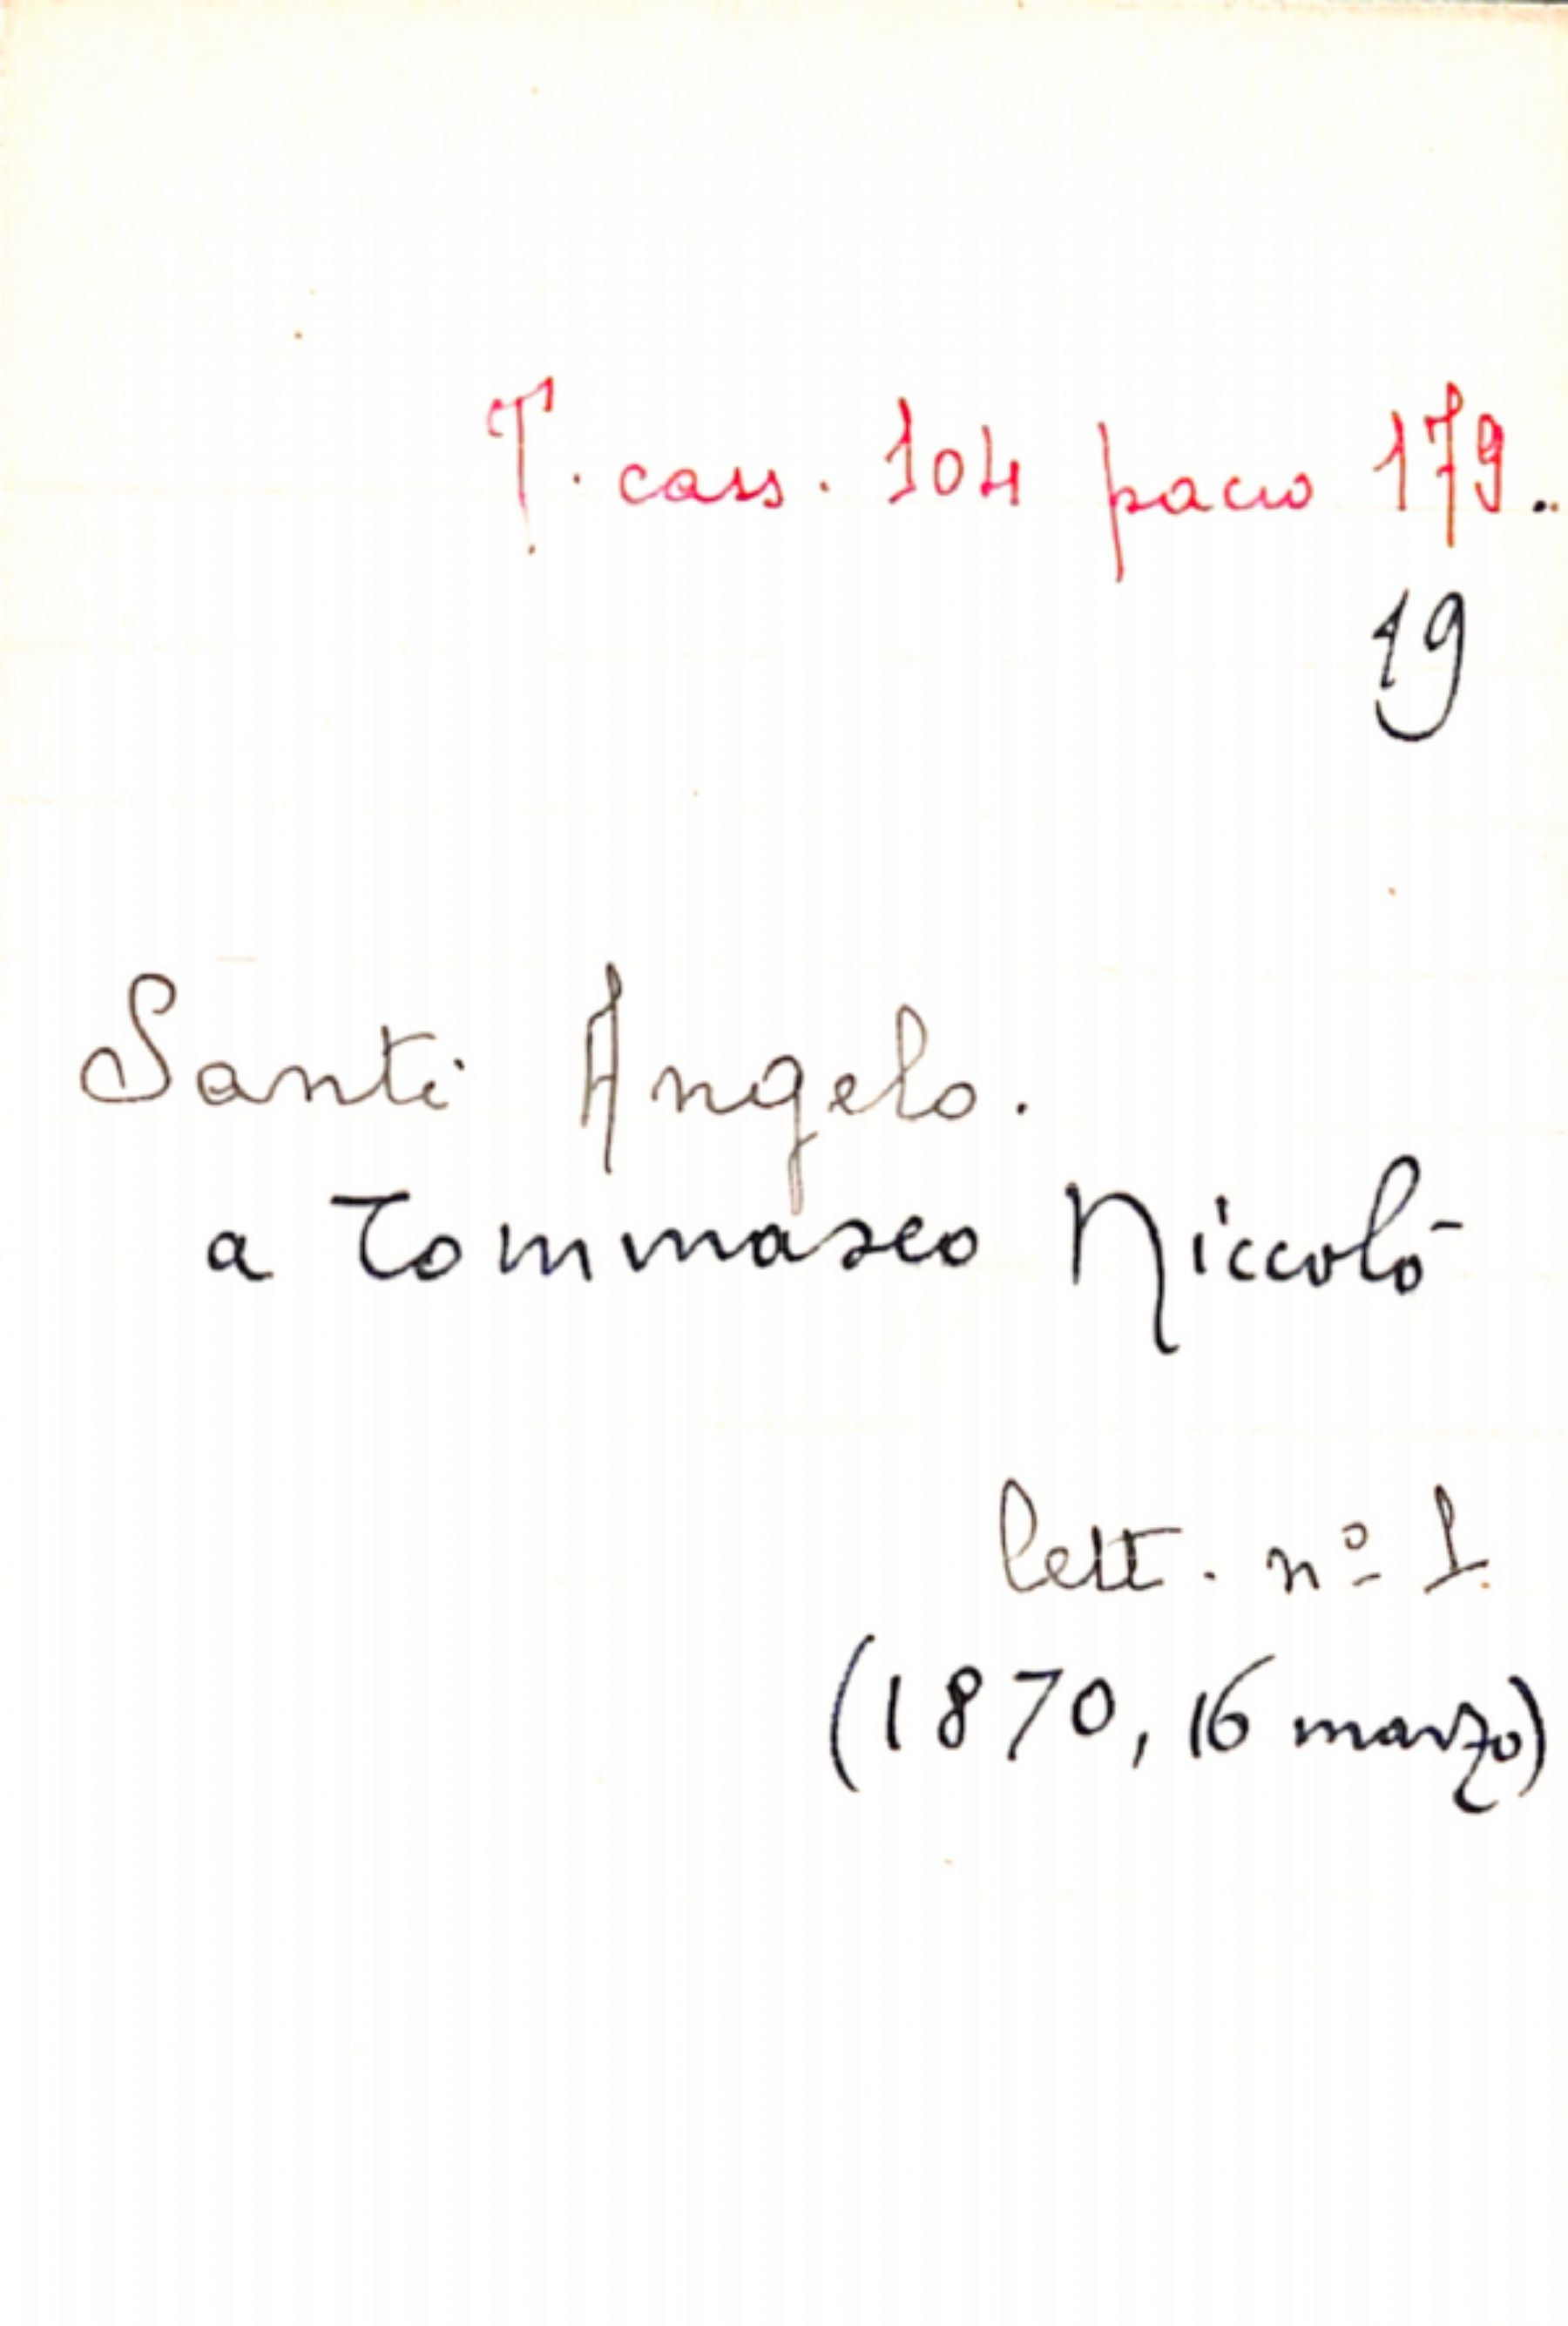 T. cass. 104 pacco 179.
19
Santi Angelo.
a Tommaseo Niccolò
lett. nº 1.
(1870, 16 marzo)